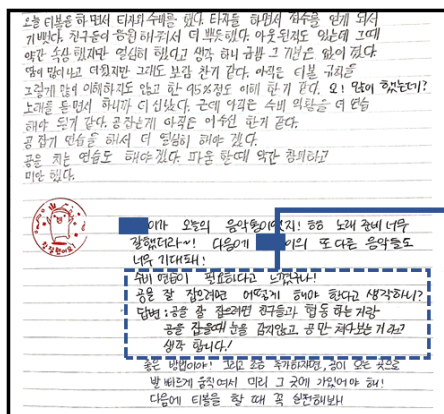 오늘 티볼을 하면서 타자와 수비를 했다. 타자를 하면서 점수를 얻게 되서
기뻤다. 친구들이 응원 해줘서 더 뿌듯했다. 아웃된적도 있는데 그때
약간 속상 했지만 열심히 했다고 생각 하니 금방 그 기분은 없어 졌다.
땀이 많이나고 더웠지만 그래도 보람 찬거 같다. 아직은 티볼 규칙을
그렇게 많이 이해하지도 않고 한 95%정도 이해 한거 같다. 오! 많이 했는데?
노래를 들으면서 하니까 더 신났다. 근데 아직은 수비 역할을 더 연습
해야 될거 같다. 공 잡는게 아직은 어수선 한거 같다.
공 잡기 연습을 해서 더 열심히 해야 겠다.
공을 치는 연습도 해야겠다. 파울 할때 약간 창피하고
미안 했다.
이가 오늘의 음악돌이였지! 노래 준비 너무
잘했더라~! 다음에 이의 또 다른 음악들도
너무 기대돼!
수비 연습이 필요하다고 느꼈구나!
공을 잘 잡으려면 어떻게 해야 한다고 생각하니?
답변 : 공을 잘 잡으려면 친구들과 협동 하는거랑
공을 잡을때 눈을 감지않고, 공만 쳐다보는 거 라고
생각 합니다!
좋은 방법이야! 그리고 조금 추가하자면, 공이 오는 곳으로
발 빠르게 움직여서 미리 그 곳에 가있어야 해!
다음에 티볼을 할 때 꼭 실천해봐!